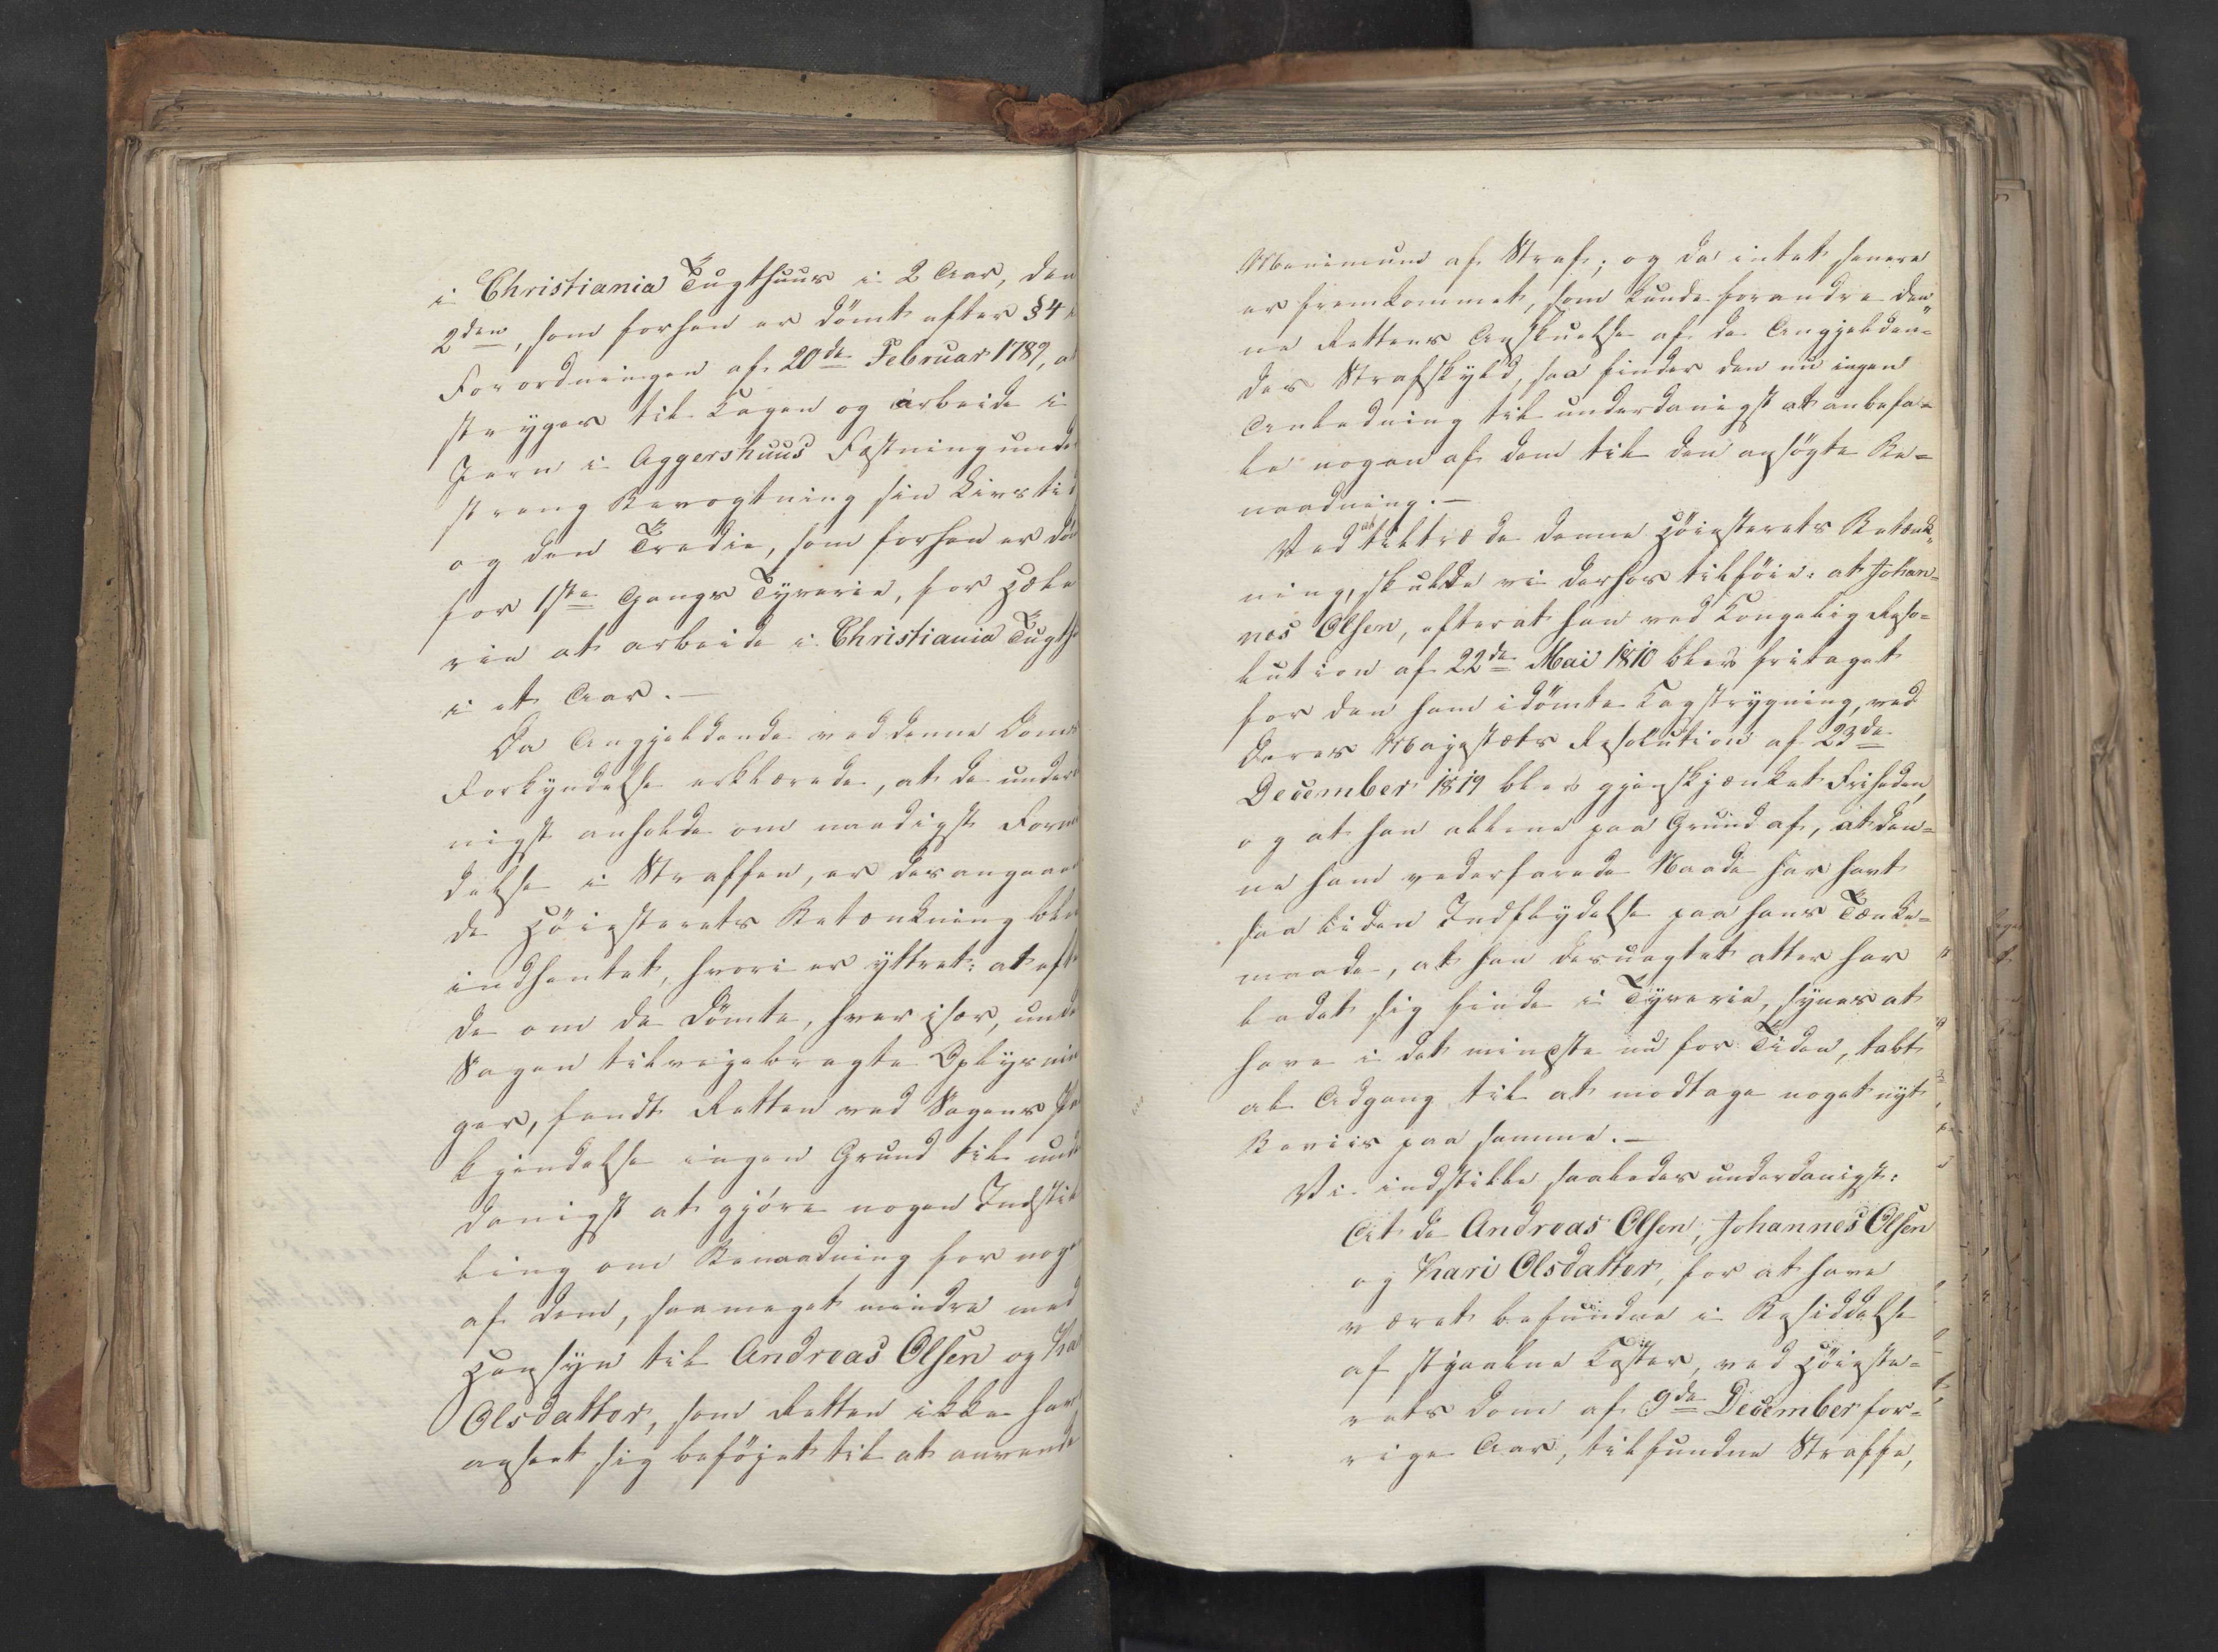 i Christiania Tugthuus i 2 Aar, den
2den, som forhen er dömt efter § 4 i
Forordningen af 20de Februar 1789, at
stryges til Kagen og arbeide i
Jern i Aggershuus Fæstning under
streng Bevogtning sin Livstid
og den Tredie, som forhen er dömt
for 1ste Gangs Tyverie, for Hæle
rie at arbeide i Christiania Tugth
i et Aar. —
Da Angjeldende ved denne Doms
Forkyndelse erklærede, at de under
nigst anholde om naadigst Form
delse i Straffen, er desangaaen
de Höiesterets Betænkning blev
indhentet, hvori er yttret: at efter
de om de Dömte, hver især, under
Sagen tilveiebragte Oplysnin
ger, fandt Retten ved Sagens Pa
kjendelse ingen Grund til under
danigst at gjöre nogen Indstil
ling om Benaadning for nogen
af dem, saameget mindre med
Hensyn til Andreas Olsen og Kari
Olsdatter, som Retten ikke har
anseet sig beföiet til at anvende
Menimum af Straf; og da intet senere
er fremkommet, som kunde forandre den-
ne Rettens Anskuelse af de Angjelden-
des Strafskyld, saa finder den nu ingen
Anledning til underdanigst at anbefa-
le nogen af dem til den ansögte Be-
naadning. —
Ved at tiltræde denne Höiesterets Betænk-
ning, skulde vi derhos tilföie: at Johan-
nes Olsen, efterat han ved Kongelig Reso-
lution af 22de Mai 1810 blev fritaget
for den ham idömte Kagstrygning, ved
Deres Majestæts Resolution af 23de
December 1819 blev gjenskjænket Friheden,
og at han allene paa Grund af, at den-
ne ham vederfarede Naade har havt
saa liden Indflydelse paa hans Tænke-
maade, at han desuagtet atter har
ladet sig finde i Tyverie, synes at
have i det mindste nu for Tiden, tabt
al Adgang til at modtage noget nyt
Beviis paa samme. —
Vi indstille saaledes underdanigst:
At de Andreas Olsen, Johannes Olsen
og Kari Olsdatter, for at have
været befundne i Besiddelse
af stjaalne Koster, ved Höieste-
rets Dom af 9de December for-
rige Aar, tilfundne Straffe,